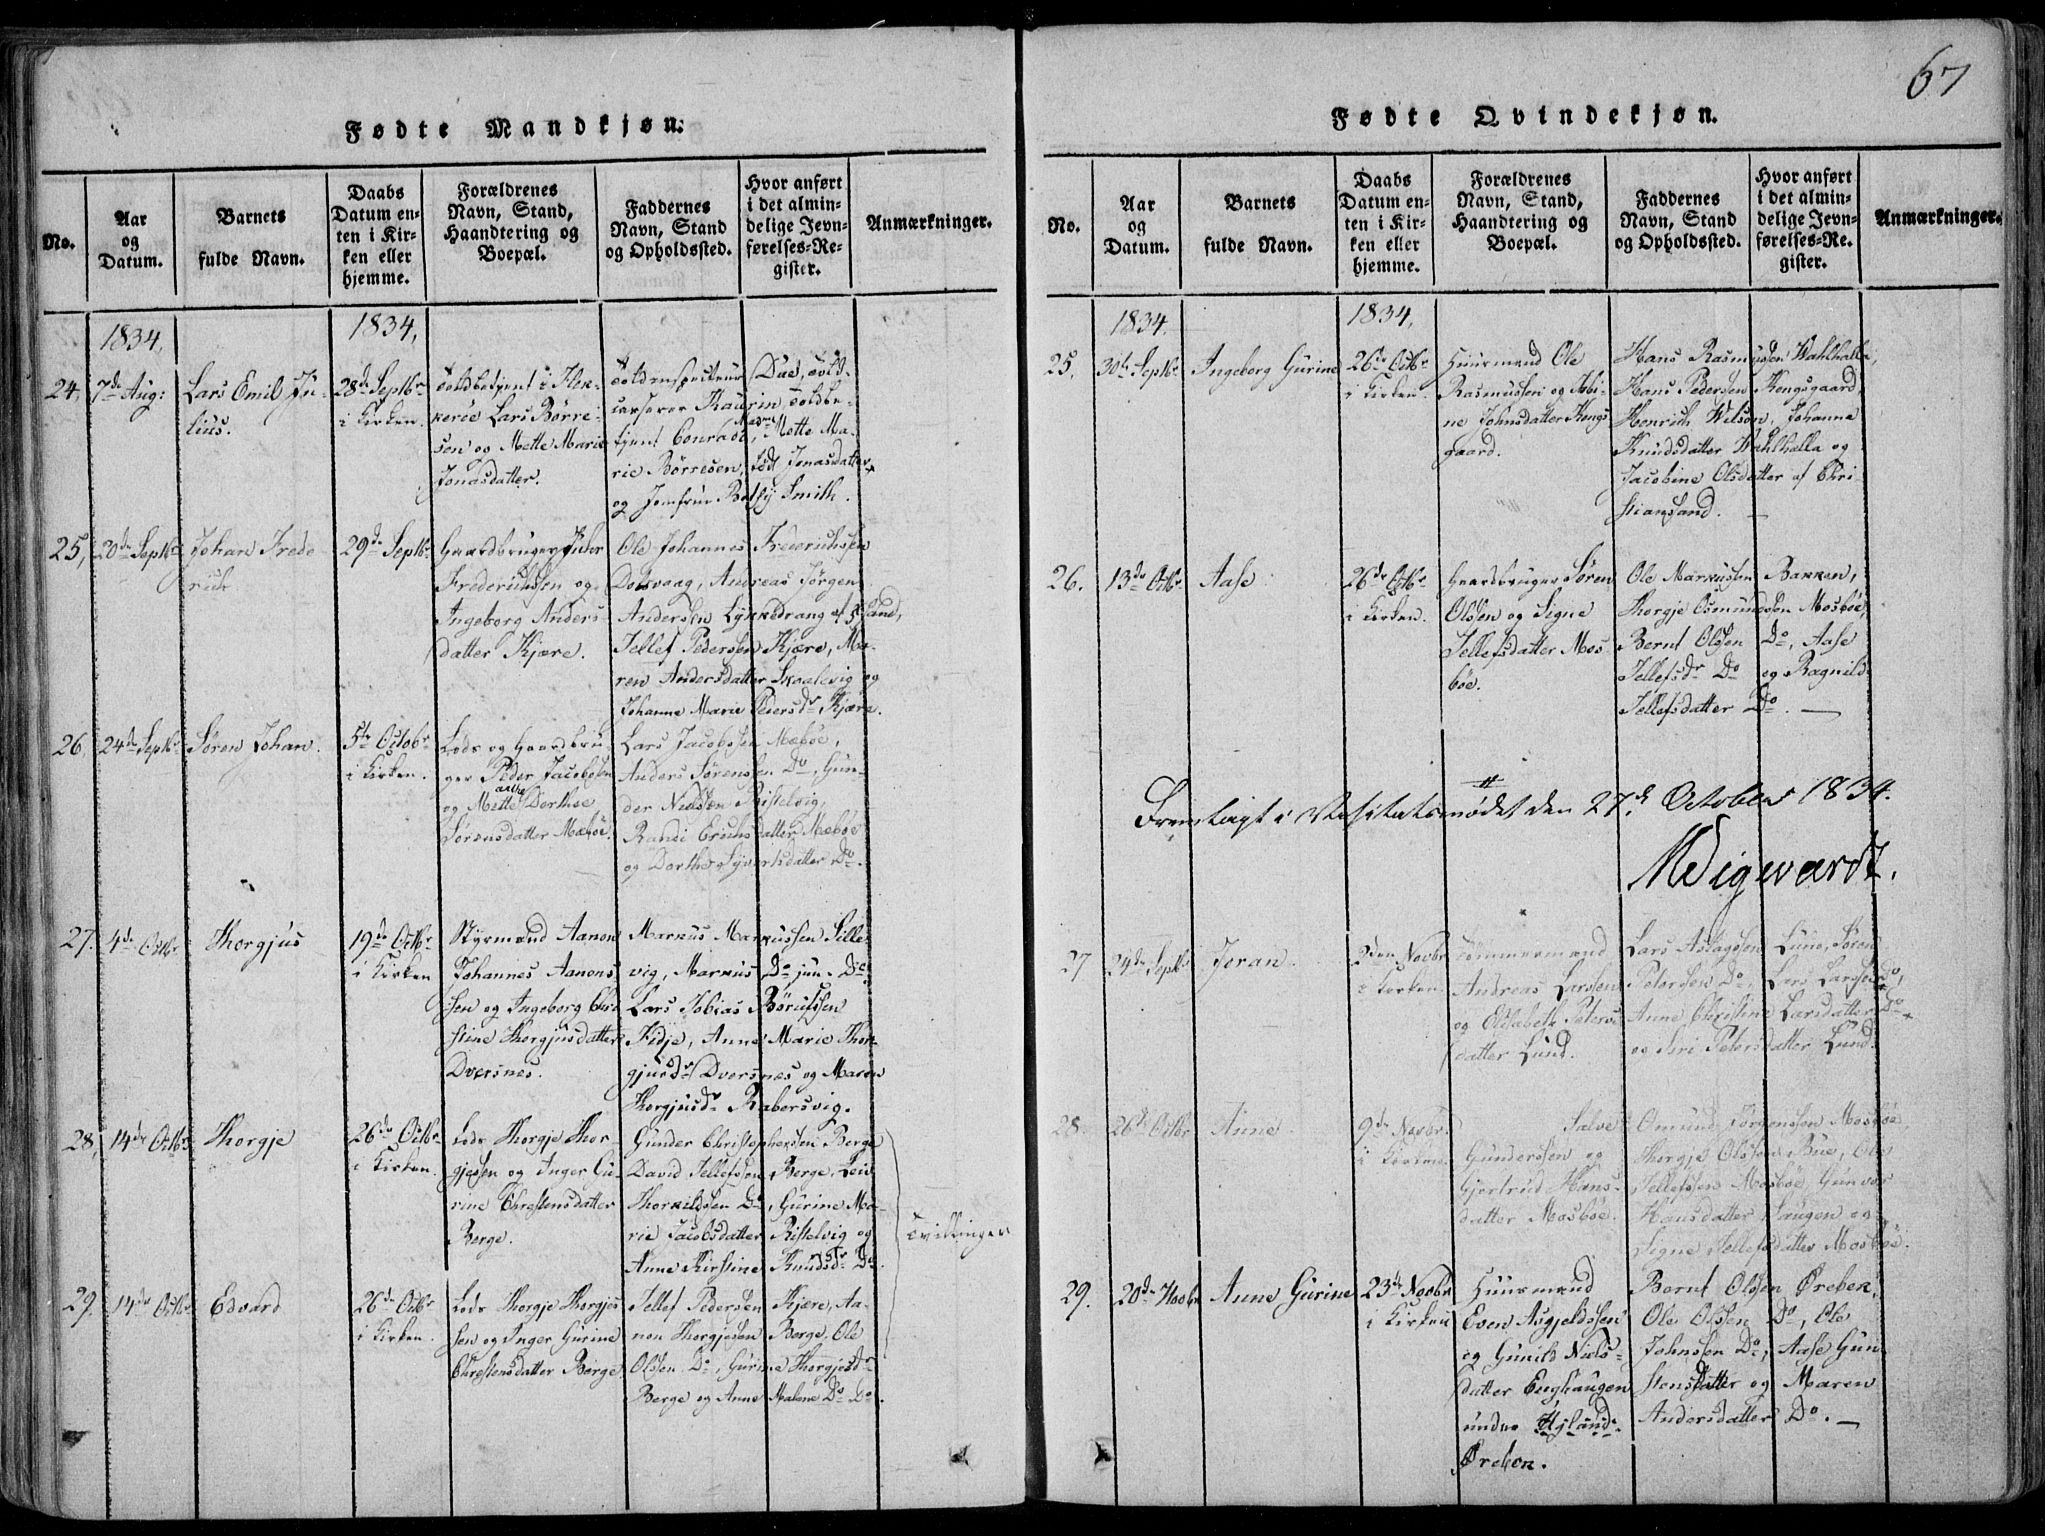 67
Fødte Mandkjøn.
No.
Aar
og
Datum.
Barnets
fulde Navn.
Daabs
Datum en-
ten i Kir-
ken eller
hjemme.
Forældrenes
Navn, Stand,
Haandtering og
Boepæl.
Faddernes
Navn, Stand
og Opholdssted.
Hvor anført
i det almin-
delige Jevn-
førelses-Re-
gister.
Anmærkninger.
1834.
1834.
24.
7de Aug:
Lars Emil Ju-
lius.
28de Septbr
i Kirken.
Toldbetjent i Flek-
keröe Lars Börre-
sen og Mette Marie
Jonasdatter.
Toldinspecteur Daae, Told-
casserer Kaurin, Toldbe-
tjent Conradi, Mad: Mette Ma-
rie Börresen, född Jonasdatter
og Jomfrue Betsy Smith.
25,
20de Septbr
Johan Frede-
rich
29de Septbr
Gaardbruger Peder
Frederichsen og
Ingeborg Anders-
datter Kjære.
Ole Johannes Frederichssen
Dolsvaag, Andreas Jörgen
Andersen Lykkedrang af Chr:sand,
Tellef Pedersen Kjære, Ma-
ren Andersdatter Skaalevig og
Johanne Marie Pedersdr Kjære.
26
24de Septbr
Sören Johan.
5te Octobr
i Kirken.
Lods og Gaardbru-
ger Peder Jacobsen
og Mette Dorthe
Sörensdatter Mæböe.
Lars Jacobssen Mæböe,
Anders Sörensen Do, Gun-
der Nielsen Ristelvig,
Randi Erichsdatter Mæböe
og Dorthe Syvertsdatter Do.
27.
4de Octbr
Thorgjus
19de Octbr
i Kirken
Styrmand Aanon
Johannes Aanons-
sen og Ingeborg Chri-
stine Thorgjusdatter
Dversnes.
Markus Markussen Kille-
vig, Markus Do jun. Do
Lars Tobias Börufssen
Fidje, Anne Marie Thor-
gjusdr Dversnes og Maren
Thorgjusdr Rabersvig.
28,
14de Octbr
Thorgje
26de Octbr
i Kirken.
Lods Thorgje Thor-
gjesen og Inger Gu-
rine Christensdatter
Berge.
Gunder Christophersen Berge
David Tellefssen Berge, Leiv
Thorkildsen Do, Gurine Ma-
rie Jacobsdatter Ristelvig og
Anne Kirstine Knudsdr Do.
Tvillinger
29.
14de Octbr
Edvard
26de Octbr
i Kirken.
Lods Thorgje Thorgjes-
sen og Inger Gurine
Christensdatter Berge
Tellef Pedersen Kjære, Aa-
non Thorgjesen Berge, Ole
Olsen Do, Gurine Thorgjesdr
Berge og Anne Malene Do Do.
Fødte Qvindekjøn.
No.
Aar
og
Datum.
Barnets
fulde Navn.
Daabs
Datum en-
ten i Kir-
ken eller
hjemme.
Forældrenes
Navn, Stand,
Haandtering og
Boepæl.
Faddernes
Navn, Stand
og Opholdssted.
Hvor anført
i det almin-
delige Jevn-
førelses-Re-
gister.
Anmærkninger.
1834.
1834.
25.
30te Septbr
Ingeborg Gurine
26de Octbr
i Kirken.
Huusmand Ole
Rasmussen og
Johnsdatter Kongs-
gaard.
Hans Rasmussen Wahlhalla,
Hans Pedersen Kongsgaard,
Henrich Wilson, Johanne
Knudsdatter Wahlhalla og
Jacobine Olsdatter af Chri-
stiansand.
26.
13de Octbr
Aase
26de Octbr
i Kirken.
Gaardbruger Sören
Olssen og Signe
Tellefsdatter Mos-
böe.
Ole Markussen Bakken,
Thorgje Osmundssen Mosböe,
Bernt Olssen Do, Aase
Tellefsdr Do og Ragnild
Tellefsdatter Do.
Fremlagt i Visitatsmødet den 27de October 1834.
MSigwardt.
27
24de Septbr
Joran.
2den Novbr
i Kirken
Tömmermand
Andreas Larssen
og Elisabeth Peters-
datter Lund.
Lars Aslagssen Lund, Sören
Petersen Do, Lars Larssen Do,
Anne Christine Larsdatter Do
og Siri Petersdatter Lund.
28.
26de Octbr
Anne
9de Novbr.
i Kirken.
Salve
Gunderssen og
Gjertrud Hans-
datter Mosböe.
Omund Jörgenssen Mosböe,
Thorgje Olssen Bue, Ole
Tellefssen Mosböe, Gunvor
Hansdatter Haugen og
Signe Tellefsdatter Mosböe.
29.
20de Novbr
Anne Gurine
23de Novbr
i Kirken
Huusmand
Even Asgjeldssen
og Gunild Niels-
datter Enghaugen
under
Örebek.
Bernt Olssen Örebek,
Ole Olssen Do, Ole
Johnsen Do, Aase Gun-
stensdatter og Maren
Andersdatter Do.